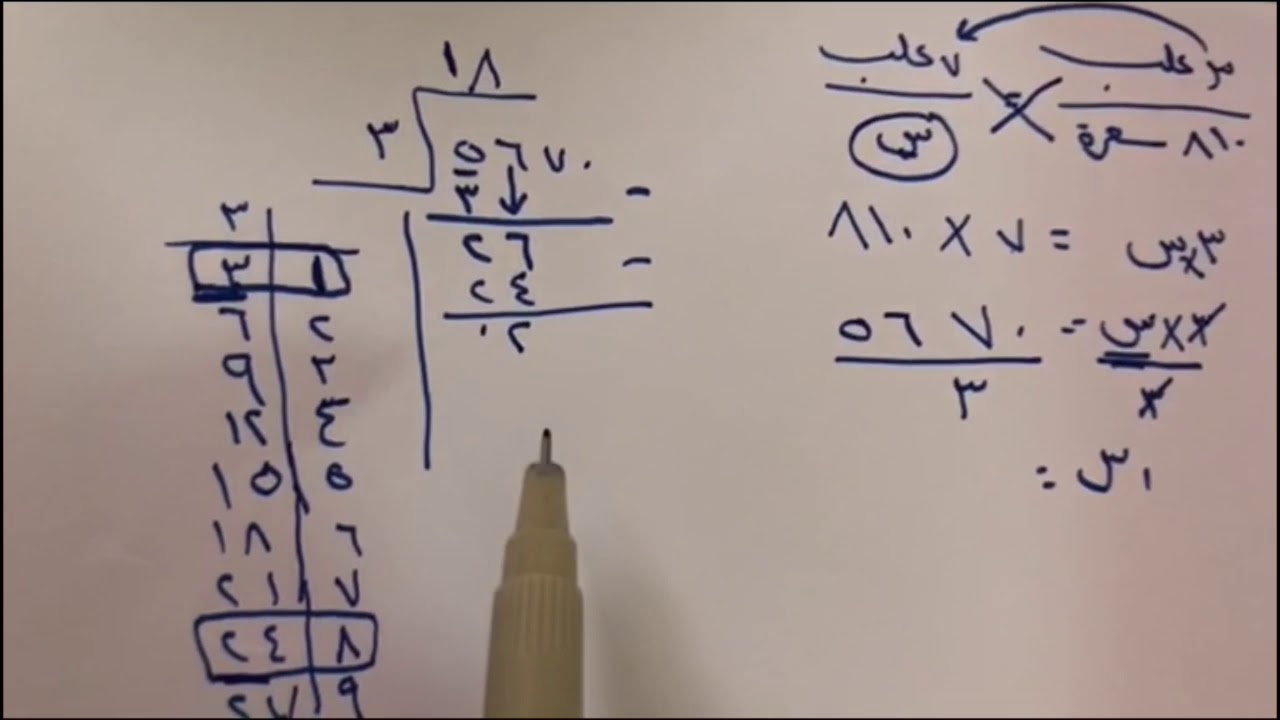 ٣ علب ٧ علب
٨١٠ سعرة س
٣ × س = ٧ × ٨١٠
٣ × س = ٥٦٧٠
٣ ٣
س =
١٨
٣ ٥٦٧٠
٣ -
٢٦ -
٢٤
٠٢
٣
٣ ١
٦ ٢
٩ ٣
١٢ ٤
١٥ ٥
١٨ ٦
٢١ ٧
٢٤ ٨
٢٧ ٩